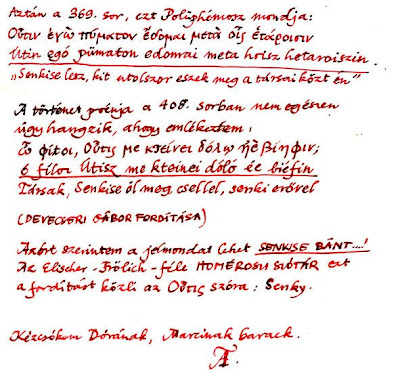 Aztán a 369. sor, ezt Polüphémosz mondja:
Οὖτιν ἐγὼ πύματον ἔδομαι μετὰ οἷς ἑτάροισιν
Útin egó pümaton edomai meta hoisz hetaroiszin.
„Senkise lesz, kit utolszor eszek meg a társai közt én”
A történet poénja a 408. sorban nem egészen
úgy hangzik, ahogy emlékeztem:
ὦ φίλοι, Οὖτις με κτείνει δόλῳ ἠὲ βίηφιν;
ó filoi Útisz me kteinei dóló ée biéfin
Társak, Senkise öl meg csellel, senki erővel
(DEVECSERI GÁBOR FORDÍTÁSA)
Azért szerintem a jelmondat lehet SENKISE BÁNT....!
Az Elischer-Frölich-féle HOMÉROSZI SZÓTÁR ezt
a fordítást közli az Οὖτις szóra: Senky.
Kézcsókom Dórának, Marcinak barack.
A.